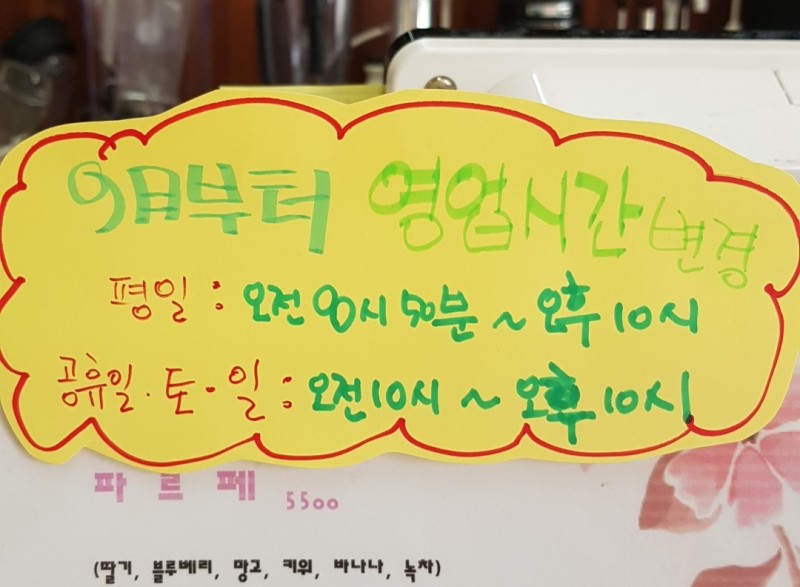 9日부터 영업시간 변경
평일 : 오전 8시 50분 ~ 오후 10시
공휴일·토·일 : 오전 10시 ~ 오후 10시
파르페 5500
(딸기, 블루베리, 망고, 키위, 바나나, 녹차)